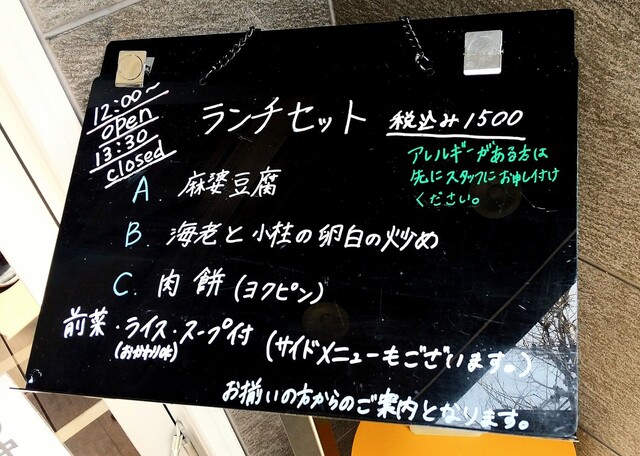 12:00～
open
13:30
closed
ランチセット 税込み1500
アレルギーがある方は
先にスタッフにお申し付け
ください。
A. 麻婆豆腐
B. 海老と小柱の卵白の炒め
C. 肉餅(ヨクピン)
前菜・ライス・スープ付(サイドメニューもございます。)
(おかわりok)
お揃いの方からのご案内となります。